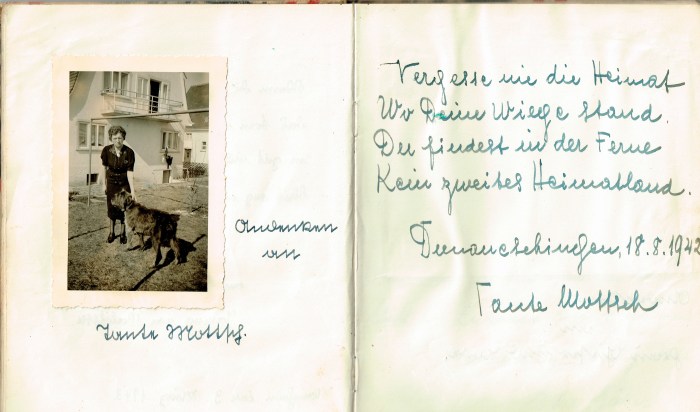 Andenken
an
Tante Mottsch.
Vergesse nie die Heimat
Wo Deine Wiege stand.
Du findest in der Ferne
Kein zweites Heimatland.
Donaueschingen, 18.8.1942
Tante Mottsch